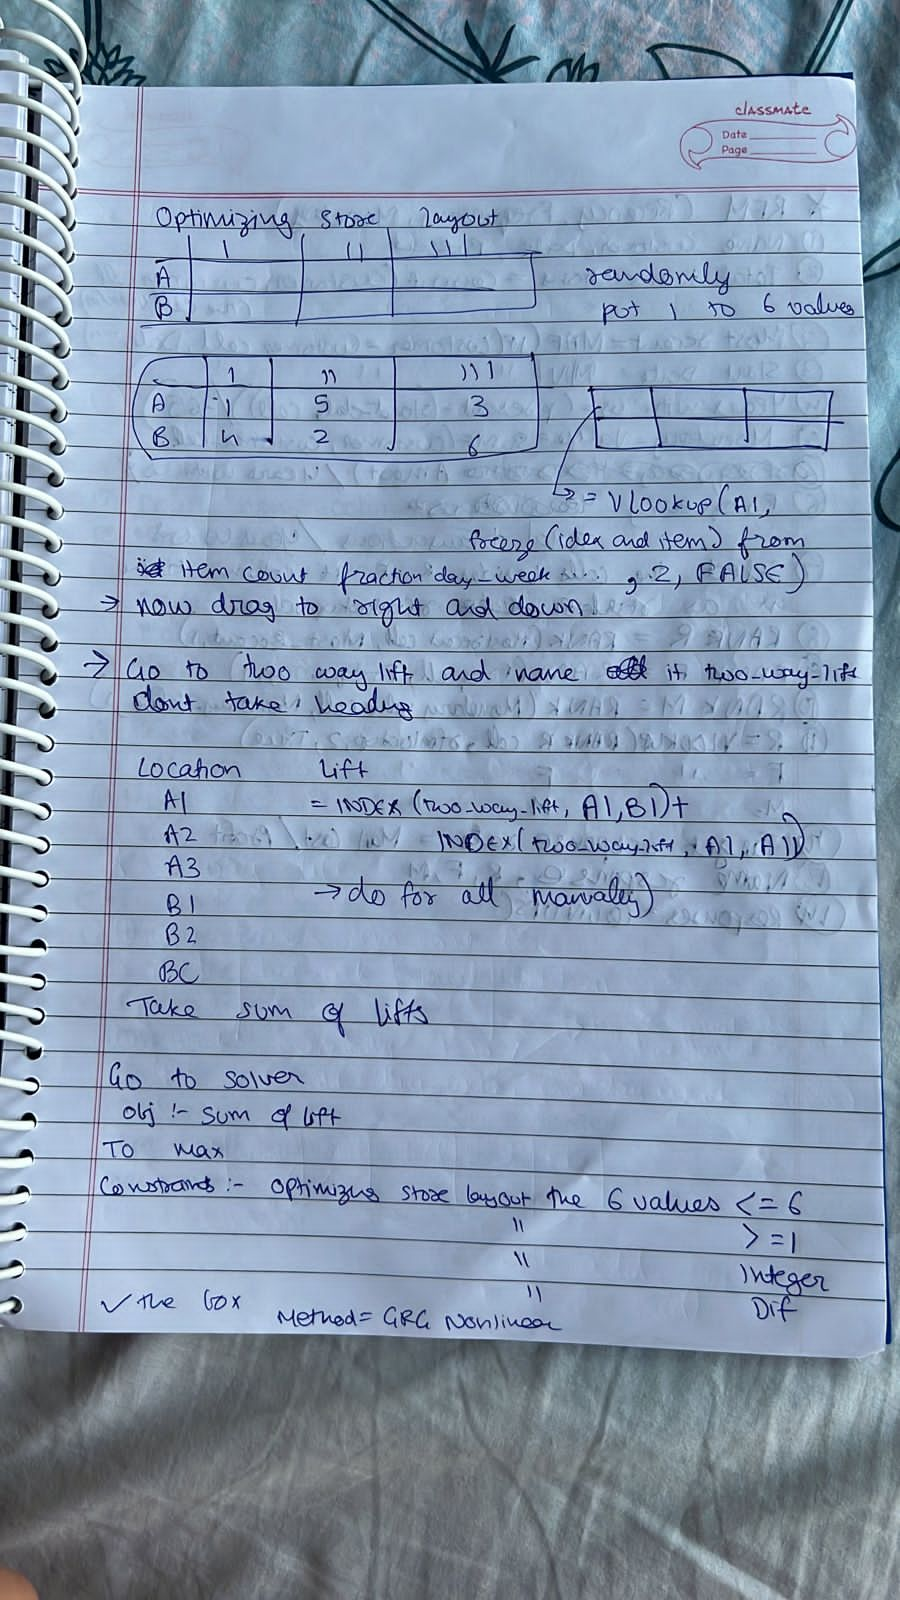 classmate
Date
Page
Optimizing store layout
I II III
A
B
randomly
put 1 to 6 values
I II III
A 1 5 3
B 4 2 6
= Vlookup(A1,
freeze (idex and item) from
item count fraction day-week , 2, FALSE)
→ now drag to right and down
→ Go to two way lift and name it two-way-lift
dont take heading
Location Lift
A1 = INDEX (two-way-lift, A1, B1) +
A2 INDEX( two-way-lift, A1, A11)
A3
B1 → do for all manualey)
B2
BC
Take sum of lifts
Go to solver
obj :- sum of lift
To max
Constrands :- Optimizing store layout the 6 values <= 6
" >= 1
" Integer
" Dif
✓ the box
Method = GRG Nonlinear